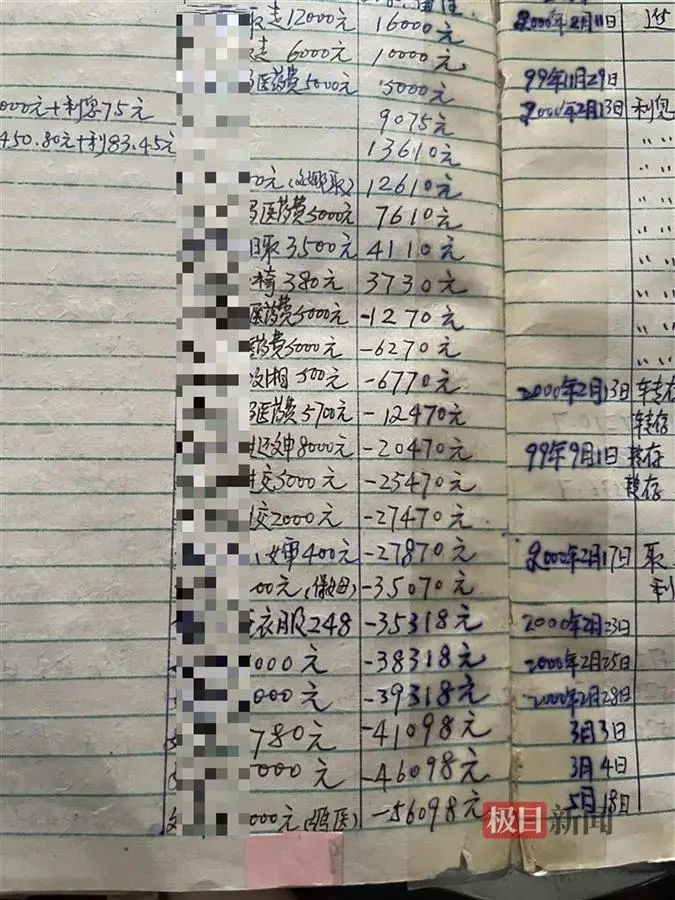 取走12000元 16000元
取走 6000元 10000元
医药费5000元 5000元
000元+利息75元 9075元
450.80元+利83.45元 13610元
00元 取) 12610元
医药费5000元 7610元
取3,500元 4110元
椅380元 3730元
医药费5000元 -1270元
医药费5000元 -6270元
500元 -6770元
医药费5700元 -12470元
还 8000元 -20470元
交5000元 -25470元
交2000元 -27470元
400元 -27870元
00元(保姆) -35070元
衣服248 -35318元
000元 -38318元
000元 -39318元
780元 -41098元
000元 -46098元
000元 -56098元
2000年2月11日
99年11月29日
2000年2月13日 利息
〃 〃
〃 〃
〃 〃
〃 〃
〃 〃
〃 〃
〃 〃
〃 〃
2000年2月13日 转存
转存
99年9月1日 转存
转存
2000年2月17日 取
利
2000年2月23日
2000年2月25日
2000年2月28日
3月3日
3月4日
5月18日
极目新闻